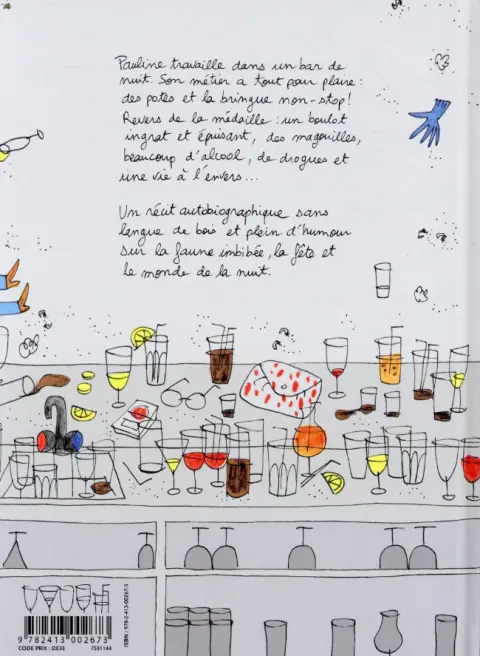 Pauline travaille dans un bar de
nuit. Son métier a tout pour plaire :
des potes et la bringue non-stop !
Revers de la médaille : un boulot
ingrat et épuisant, des magouilles,
beaucoup d'alcool, de drogues et
une vie à l'envers...
Un récit autobiographique sans
langue de bois et plein d'humour
sur la faune imbibée, la fête et
le monde de la nuit.
ISBN : 978-2-413-00267-3
9 782413 002673
CODE PRIX : DE38 7581144